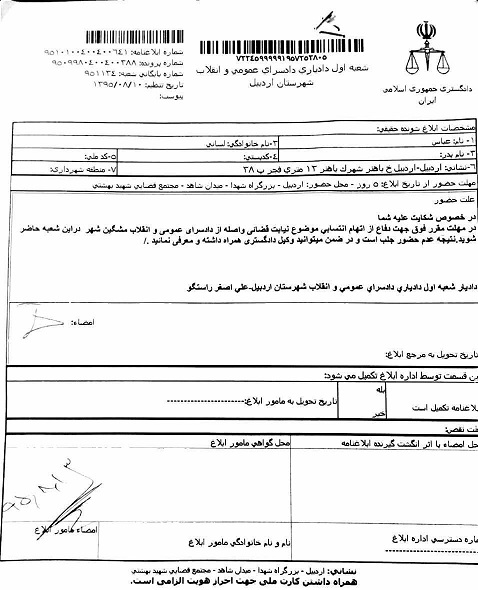 دادگستری جمهوری اسلامی
ایران
۷۲۲۴۵۹۹۹۹۱۹۵۷۲۵۳۸۰۵
شعبه اول دادیاری دادسرای عمومی و انقلاب
شهرستان اردبیل
شماره ابلاغنامه: ۹۵۱۰۱۰۰۴۰۰۴۰۰۶۴۱
شماره پرونده: ۹۵۰۹۹۸۰۴۰۰۴۰۰۳۸۸
شماره بایگانی شعبه: ۹۵۱۱۳۴
تاریخ تنظیم: ۱۳۹۵/۰۸/۱۰
پیوست:
مشخصات ابلاغ شونده حقیقی:
۱- نام: عباس
۲-نام خانوادگی: لسانی
۳- نام پدر:
۴-کدپستی:
۵-کد ملی:
۶-نشانی: اردبیل-اردبیل خ باهنر شهرک باهنر ۱۳ متری فجر پ ۳۸
۷- منطقه شهرداری:
مهلت حضور از تاریخ ابلاغ: ۵ روز - محل حضور: اردبیل - بزرگراه شهدا - میدان شاهد - مجتمع قضایی شهید بهشتی
علت حضور
در خصوص شکایت علیه شما
در مهلت مقرر فوق جهت دفاع از اتهام انتسابی موضوع نیابت قضائی واصله از دادسرای عمومی و انقلاب مشگین شهر دراین شعبه حاضر
شوید.نتیجه عدم حضور جلب است و در ضمن میتوانید وکیل دادگستری همراه داشته و معرفی نمائید ./
دادیار شعبه اول دادیاری دادسرای عمومی و انقلاب شهرستان اردبیل-علی اصغر راستگو
امضاء:
تاریخ تحویل به مرجع ابلاغ:
ین قسمت توسط اداره ابلاغ تکمیل می شود:
بلاغنامه تکمیل است
بله
خیر
تاریخ تحویل به مامور ابلاغ:------------------------
لت نقص:
حل امضاء یا اثر انگشت گیرنده ابلاغنامه
محل گواهی مامور ابلاغ
ماره دسترسی اداره ابلاغ
نام و نام خانوادگی مامور ابلاغ
امضاء مامور ابلاغ
نشانی: اردبیل - بزرگراه شهدا - میدان شاهد - مجتمع قضایی شهید بهشتی
همراه داشتن کارت ملی جهت احراز هویت الزامی است.